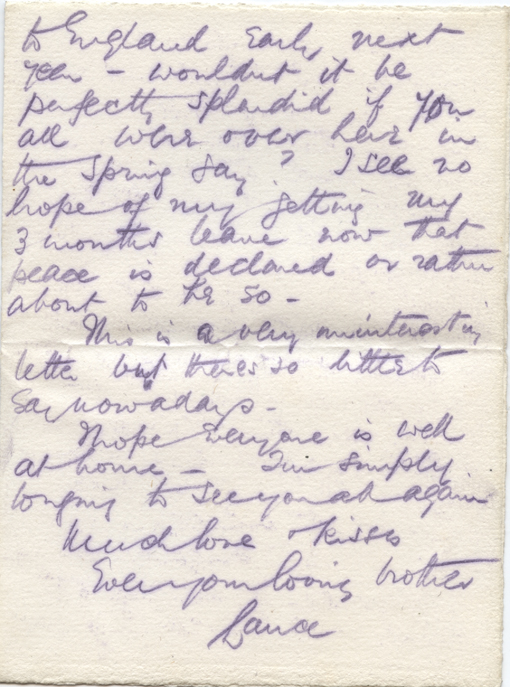 to England early next
year - wouldnt it be
perfectly splendid if you
all were over here in
the Spring say? I see no
hope of my getting my
3 months leave now that
peace is declared or rather
about to be so -
This is a very uninteresting
letter but theres so little to
say nowadays -
I hope everyone is well
at home - I'm simply
longing to see you all again
Much love & kisses
Ever your loving brother
Lance